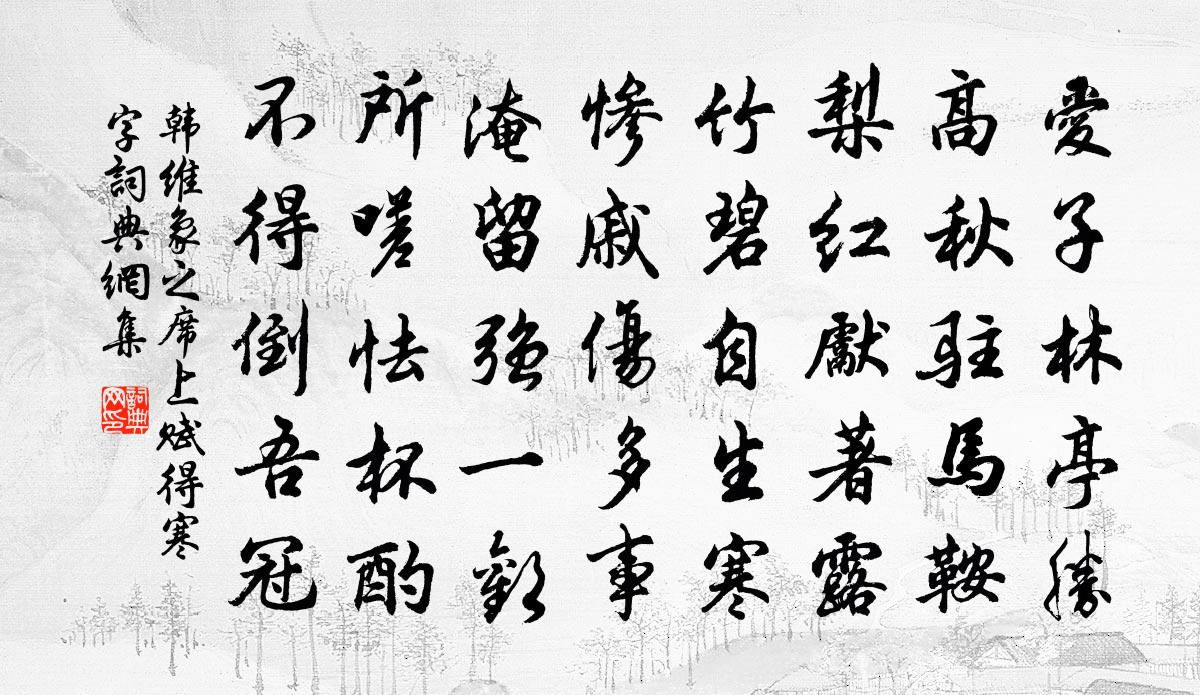 愛子林亭勝
高秋駐馬鞍
梨紅獻著露
竹碧自生寒
慘戚傷多事
淹留強一歡
所嗟怯杯酌
不得倒吾冠
韩維象之席上賦得寒
字詞典網集
詞典
网印